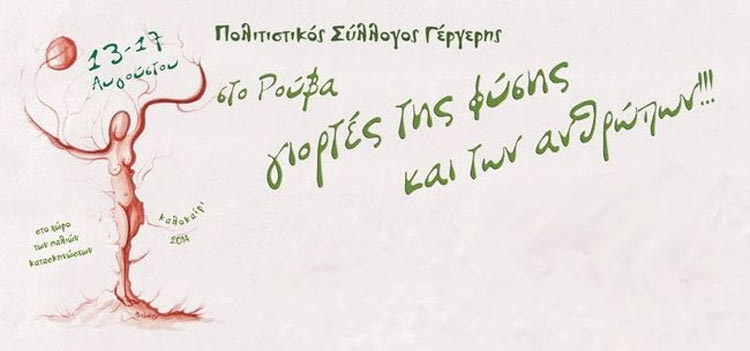 13-17
Αυγούστου
Πολιτιστικός Σύλλογος Γέργερης
στο Ρούβα
γιορτές της φύσης
και των ανθρώπων!!!
καλοκαίρι
2014
στο χώρο
των παλιών
κατασκηνώσεων